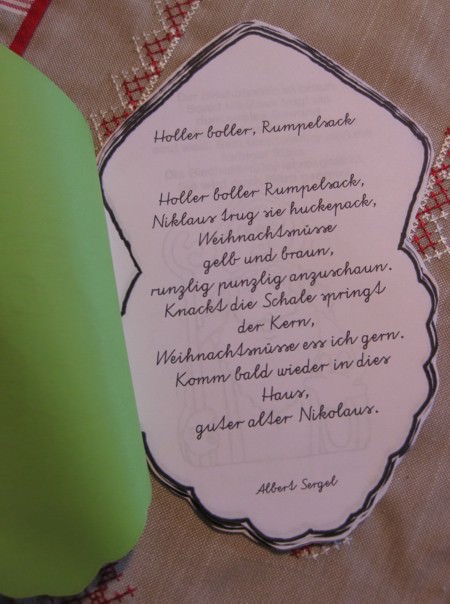 Holler boller, Rumpelsack
Holler boller Rumpelsack,
Niklaus trug sie huckepack,
Weihnachtsnüsse
gelb und braun,
runzlig punzlig anzuschaun.
Knackt die Schale springt
der Kern,
Weihnachtsnüsse ess ich gern.
Komm bald wieder in dies
Haus,
guter alter Nikolaus.
Albert Sergel